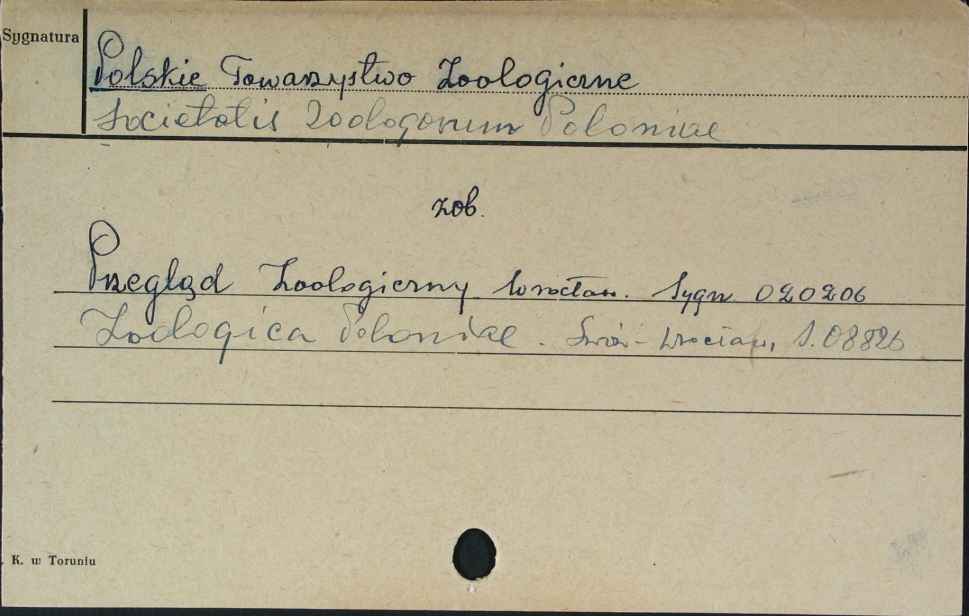 Sygnatura
Polskie Towarzystwo Zoologiczne
Societatis Zoologorum Poloniae
zob.
Przegląd Zoologiczny Wrocław. Sygn 020206
Zoologica Poloniae. Lwów - Wrocław, S. 08826
K. w Toruniu